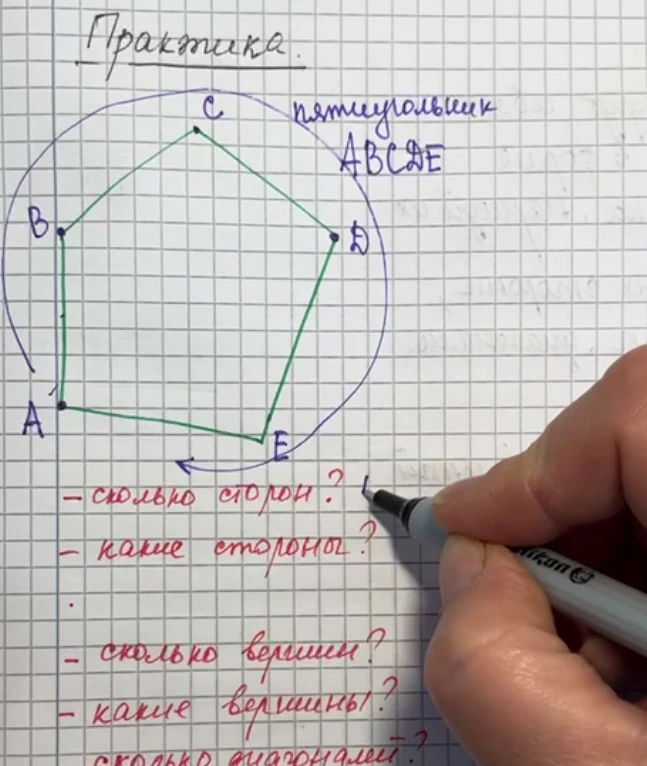 Практика.
C
пятиугольник
ABCDE
B
D
A
E
- сколько сторон?
- какие стороны?
- сколько вершин?
- какие вершины?
сколько диагоналей?